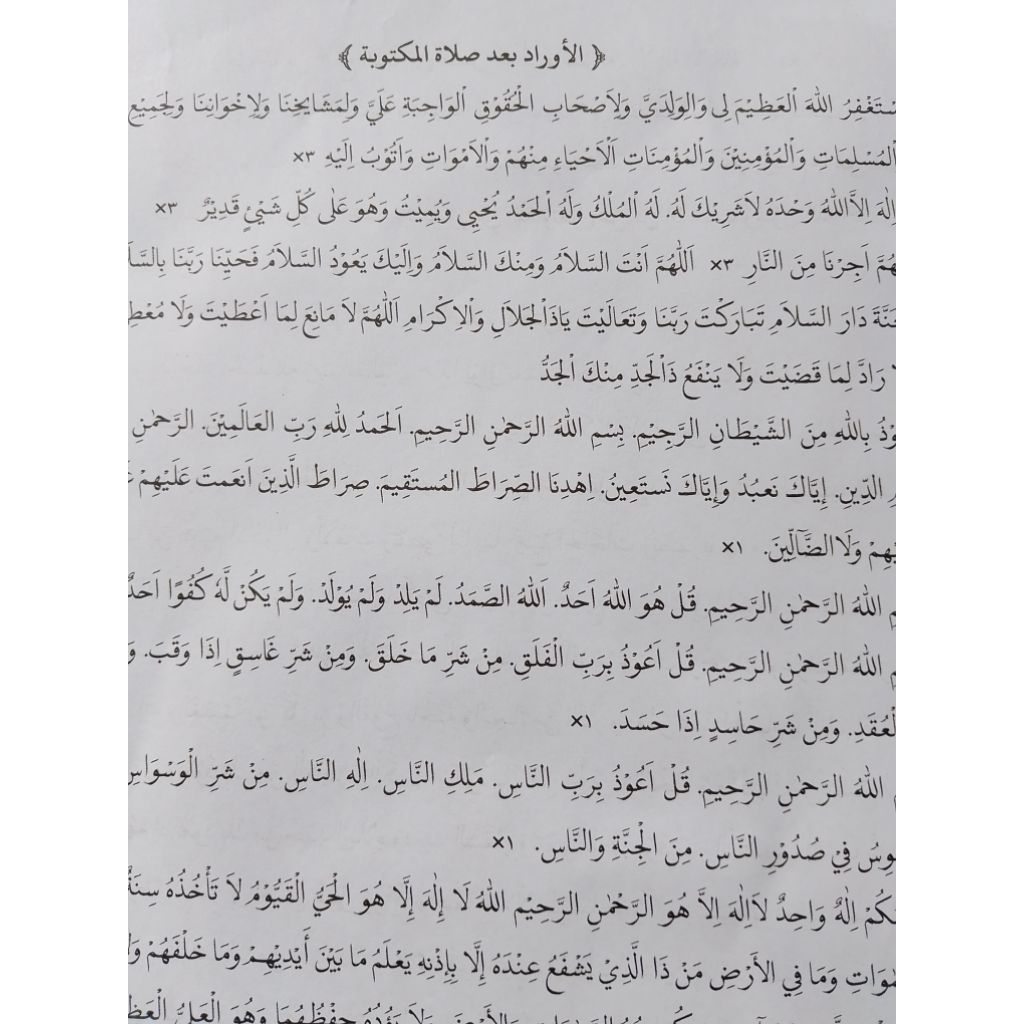 ﴿ الأوراد بعد صلاة المكتوبة ﴾
اللهَ اْلعَظِيْمَ لِى وَالِوَلِدَيَّ وَلِاَصْحَابِ الْحُقُوْقِ اْلوَاجِبَةِ عَلَيَّ وَلِمَشَايِخِنَا وَلِاِخْوَانِنَا وَلِجَمِيْعِ
اْلمُسْلِمَاتِ وَاْلمُؤْمِنِيْنَ وَاْلمُؤْمِنَاتِ اَلْاَحْيَاءِ مِنْهُمْ وَاْلاَمْوَاتِ وَاَتُوْبُ اِلَيْهِ ×٣
اِلٰهَ اِلاَّاللهُ وَحْدَهُ لاَشَرِيْكَ لَهُ. لَهُ اْلمُلْكُ وَلَهُ اْلحَمْدُ يُحْيِى وَيُمِيْتُ وَهُوَ عَلٰى كُلِّ شَيْئٍ قَدِيْرٌ ×٣
اَجِرْنَا مِنَ النَّارِ ×٣ اَللّٰهُمَّ اَنْتَ السَّلاَمُ وَمِنْكَ السَّلاَمُ وَاِلَيْكَ يَعُوْدُ السَّلاَمُ فَحَيِّنَا رَبَّنَا
دَارَ السَّلاَمِ تَبَارَكْتَ رَبَّنَا وَتَعَالَيْتَ يَاذَاْلجَلاَلِ وَاْلاِكْرَامِ اَللّٰهُمَّ لاَ مَانِعَ لِمَا اَعْطَيْتَ وَلَا
رَادَّ لِمَا قَضَيْتَ وَلَا يَنْفَعُ ذَاْلجَدِّ مِنْكَ اْلجَدُّ
بِاللهِ مِنَ الشَّيْطَانِ الرَّجِيْمِ. بِسْمِ اللهِ الرَّحْمٰنِ الرَّحِيمِ. اَلحَمْدُ لِلّٰهِ رَبِّ العَالَمِيْنَ. الرَّحْمٰنِ
الدِّينِ. إِيَّاكَ نَعبُدُ وَإِيَّاكَ نَستَعِينُ. اِهْدِنَا الصِّرَاطَ المُستَقِيمَ. صِرَاطَ الَّذِينَ اَنعَمتَ عَلَيْهِمْ
وَلَاالضَّآلِّينَ. ×١
اللهِ الرَّحْمٰنِ الرَّحِيمِ. قُلْ هُوَ اللهُ اَحَدٌ. اَللهُ الصَّمَدُ. لَمْ يَلِدْ وَلَمْ يُوْلَدْ. وَلَمْ يَكُنْ لَّهٗ كُفُوًا اَحَدٌ
اللهِ الرَّحْمٰنِ الرَّحِيمِ. قُلْ اَعُوْذُ بِرَبِّ الْفَلَقِ. مِنْ شَرِّ مَا خَلَقَ. وَمِنْ شَرِّ غَاسِقٍ اِذَا وَقَبَ.
الْعُقَدِ. وَمِنْ شَرِّ حَاسِدٍ اِذَا حَسَدَ. ×١
اللهِ الرَّحْمٰنِ الرَّحِيمِ. قُلْ اَعُوْذُ بِرَبِّ النَّاسِ. مَلِكِ النَّاسِ. اِلٰهِ النَّاسِ. مِنْ شَرِّ الْوَسْوَاسِ
فِيْ صُدُوْرِ النَّاسِ. مِنَ الْجِنَّةِ وَالنَّاسِ. ×١
اِلٰهٌ وَاحِدٌ لاَاِلٰهَ اِلاَّ هُوَ الرَّحْمٰنِ الرَّحِيْمِ اللهُ لَا إِلٰهَ إِلَّا هُوَ الْحَيُّ الْقَيُّوْمُ لاَ تَأْخُذُهُ سِنَةٌ
وَمَا فِي الأَرْضِ مَنْ ذَا الَّذِيْ يَشْفَعُ عِنْدَهُ إِلَّا بِإِذْنِهِ يَعْلَمُ مَا بَيْنَ أَيْدِيْهِمْ وَمَا خَلْفَهُمْ
وَلاَ يَؤُدُهُ حِفْظُهُمَا وَهُوَ الْعَلِيُّ